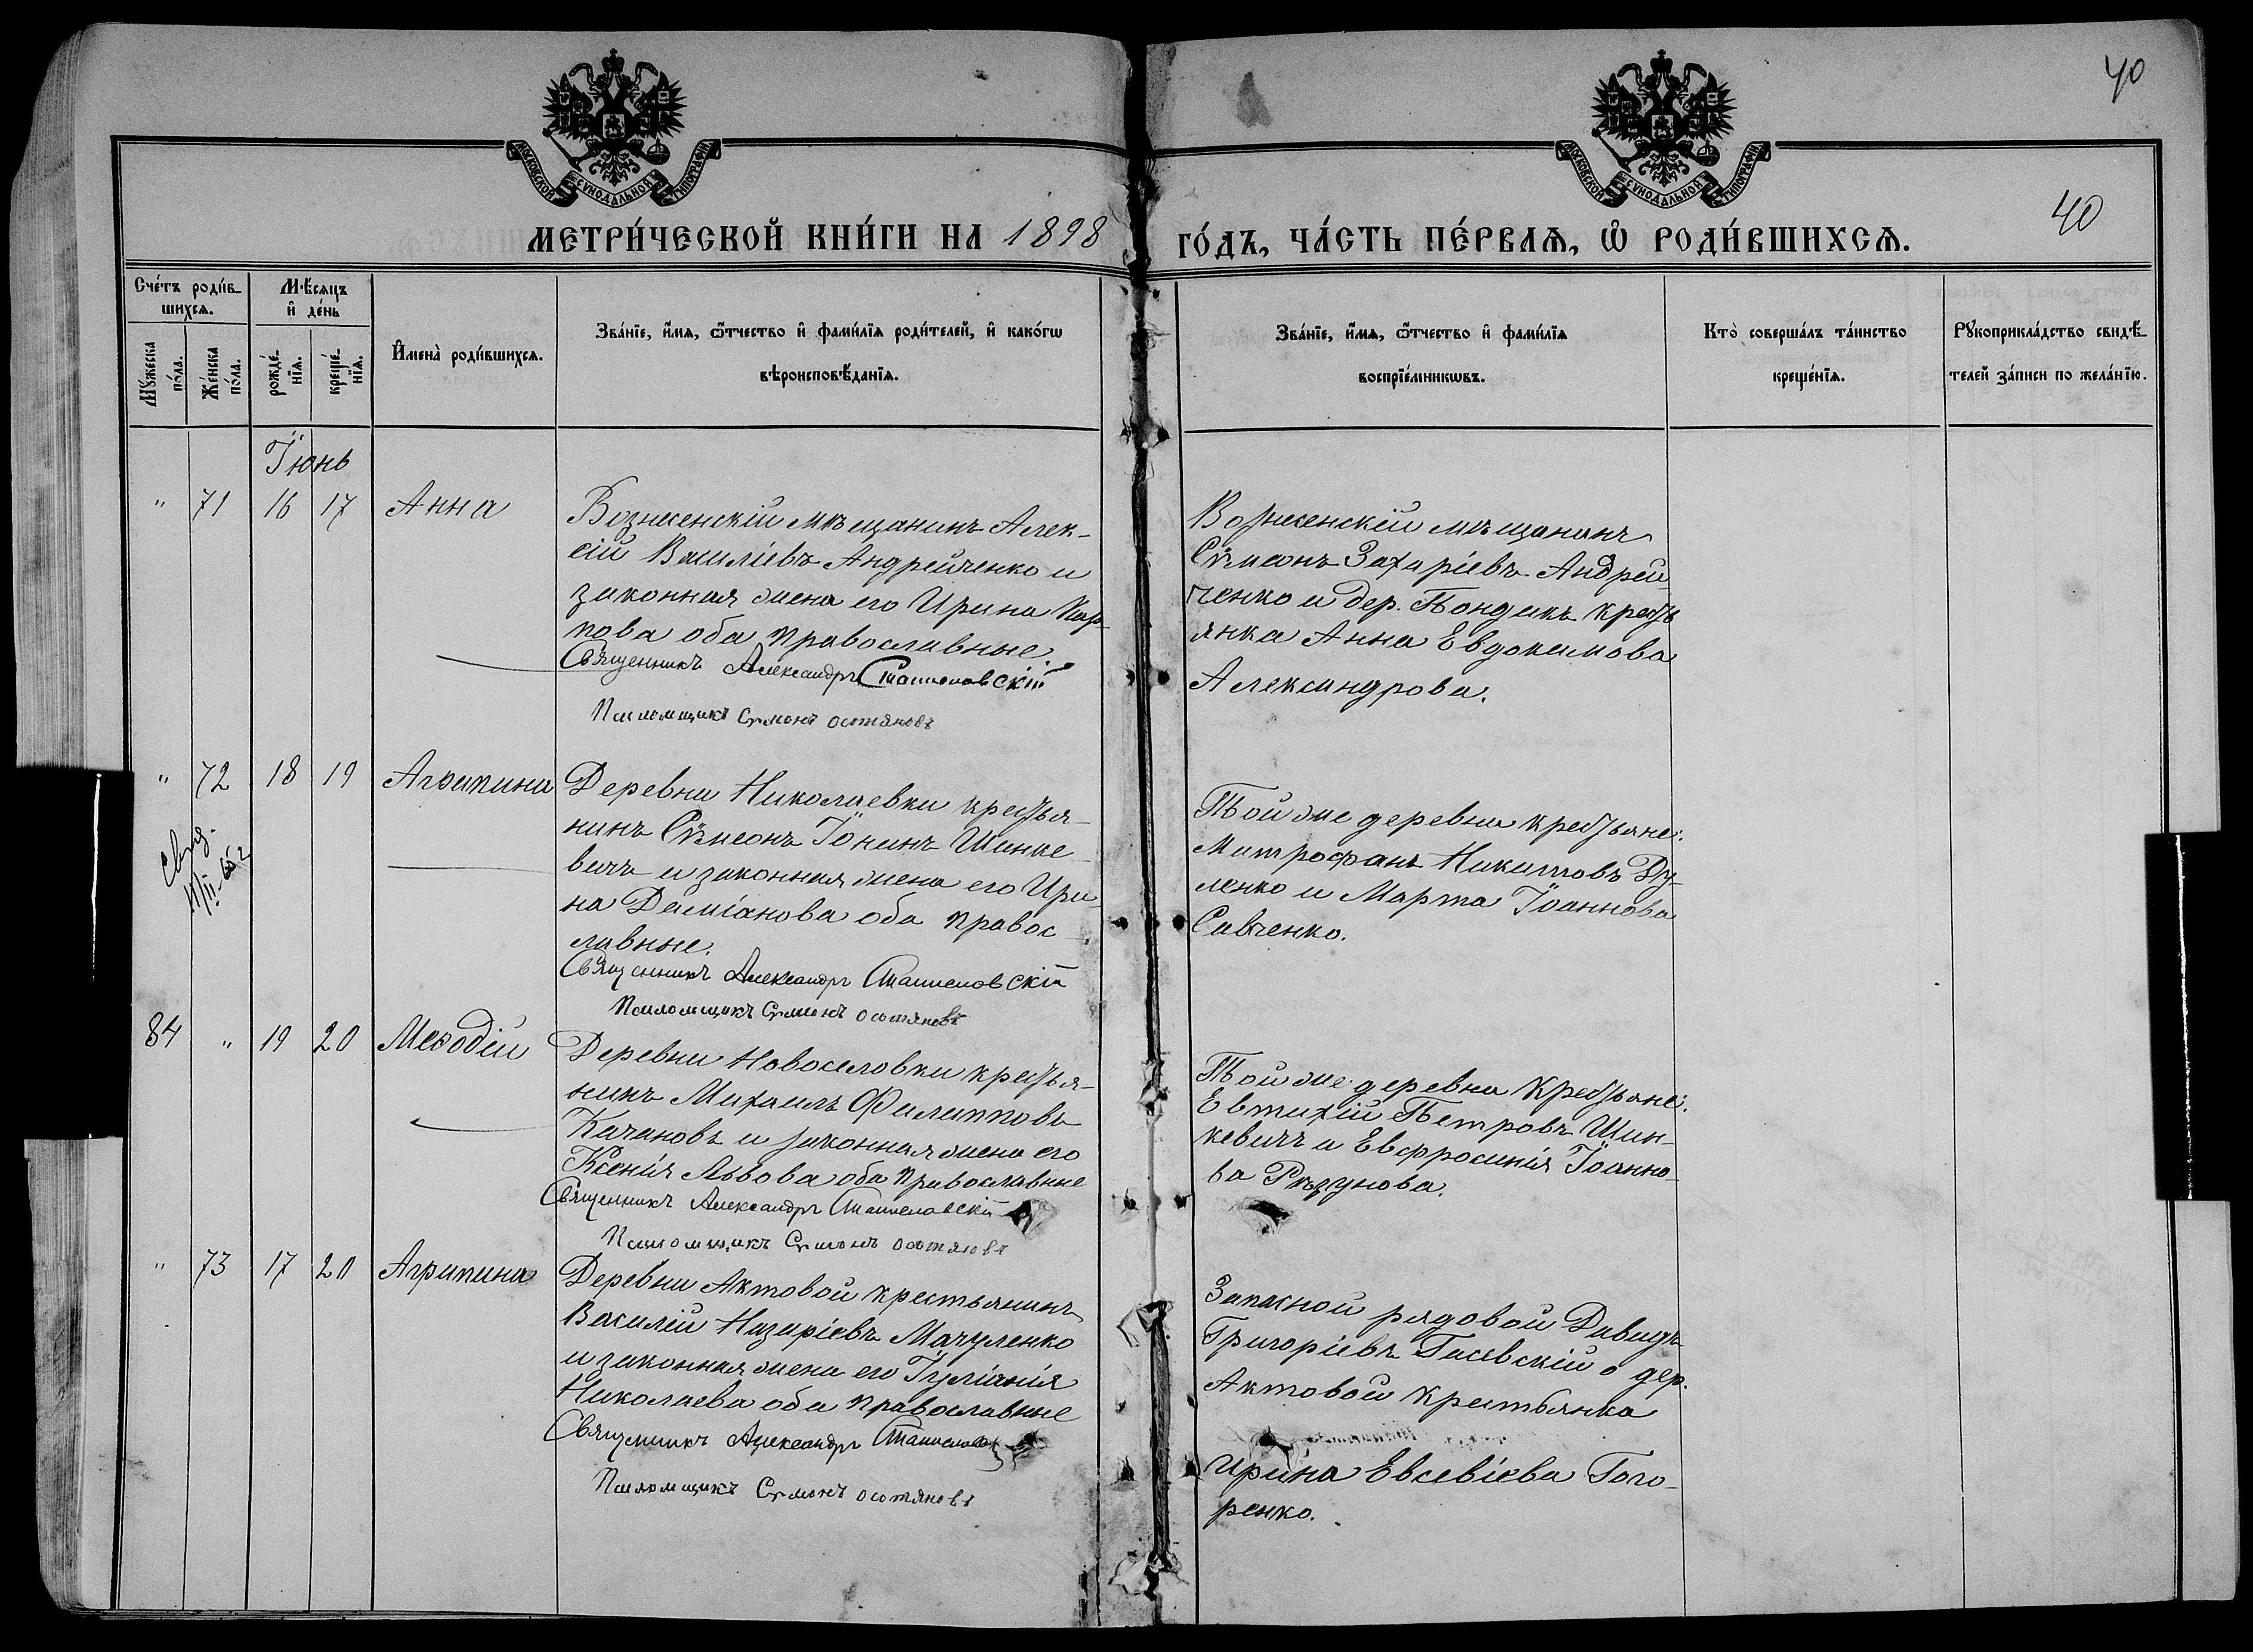 40
МОСКОВСКОЙ СѴНОДАЛЬНОЙ ТИПОГРАФІИ
МОСКОВСКОЙ СѴНОДАЛЬНОЙ ТИПОГРАФІИ
МЕТРИ́ЧЕСКОЙ КНИ́ГИ НА 1898 ГО́ДЪ, ЧА́СТЬ ПЕ́РВАѦ, Ѡ҆ РОДИ́ВШИХСѦ.
40
Сче́тъ роди́в-
шихсѧ.
Мѣ́сѧцъ
и҆ де́нь
Мꙋ́жеска
по́ла.
Же́нска
по́ла.
рожде́-
нїѧ.
креще́-
нїѧ.
И҆мена̀ роди́вшихсѧ.
Зва́нїе, и҆́мѧ, ѻ҆́тчество и҆ фами́лїѧ роди́телей, и҆ како́гѡ
вѣроисповѣ́данїѧ.
Зва́нїе, и҆́мѧ, ѻ҆́тчество и҆ фами́лїѧ
воспрїе́мникѡвъ.
Кто̀ соверша́лъ та́инство
креще́нїѧ.
Рꙋкоприкла́дство свидѣ́-
телей за́писи по жела́нїю.
Іюнь
" 71 16 17 Анна
Вознесенскій мѣщанинъ Алек-
сій Василіевъ Андрейченко и
законная жена его Ирина Кар-
пова оба православные.
Священникъ Александръ
Псаломщикъ Сумонъ Остяновъ
Вознесенскій мѣщанинъ
Сѵмеонъ Захаріевъ Андрей
ченко и дер. Бондикъ кресть
янка Анна Евдокимова
Александрова.
" 72 18 19 Агрипина
Деревни Николаевки крестья-
нинъ Сѵмеонъ Іонинъ Шинке-
вичъ и законная жена его Ири-
на Даміанова оба правос-
лавные.
Священникъ Александръ
Псаломщикъ Сумонъ Остяновъ
Той же деревни крестьяне:
Митрофанъ Никитовъ Ду-
ленко и Марта Іоаннова
Савченко.
84 " 19 20 Меѳодій
Деревни Новоселовки крестья-
нинъ Михаилъ Филипповъ
Качановъ и законная жена его
Ксенія Львова оба православные
Священникъ Александръ
Псаломщикъ Сумонъ Остяновъ
Той же деревни крестьяне:
Евтихій Петровъ Шин-
кевичъ и Евфросинія Іоанно-
ва Рѣдунова.
" 73 17 20 Агрипина
Деревни Актовой крестьянинъ
Василій Назаріевъ Мачуленко
и законная жена его Іуліанія
Николаева оба православные
Священникъ Александръ
Псаломщикъ Сумонъ Остяновъ
Запасной рядовой Давидъ
Григоріевъ Гаевскій и дер.
Актовой крестьянка
Ирина Евсевіева Гого-
ренко.